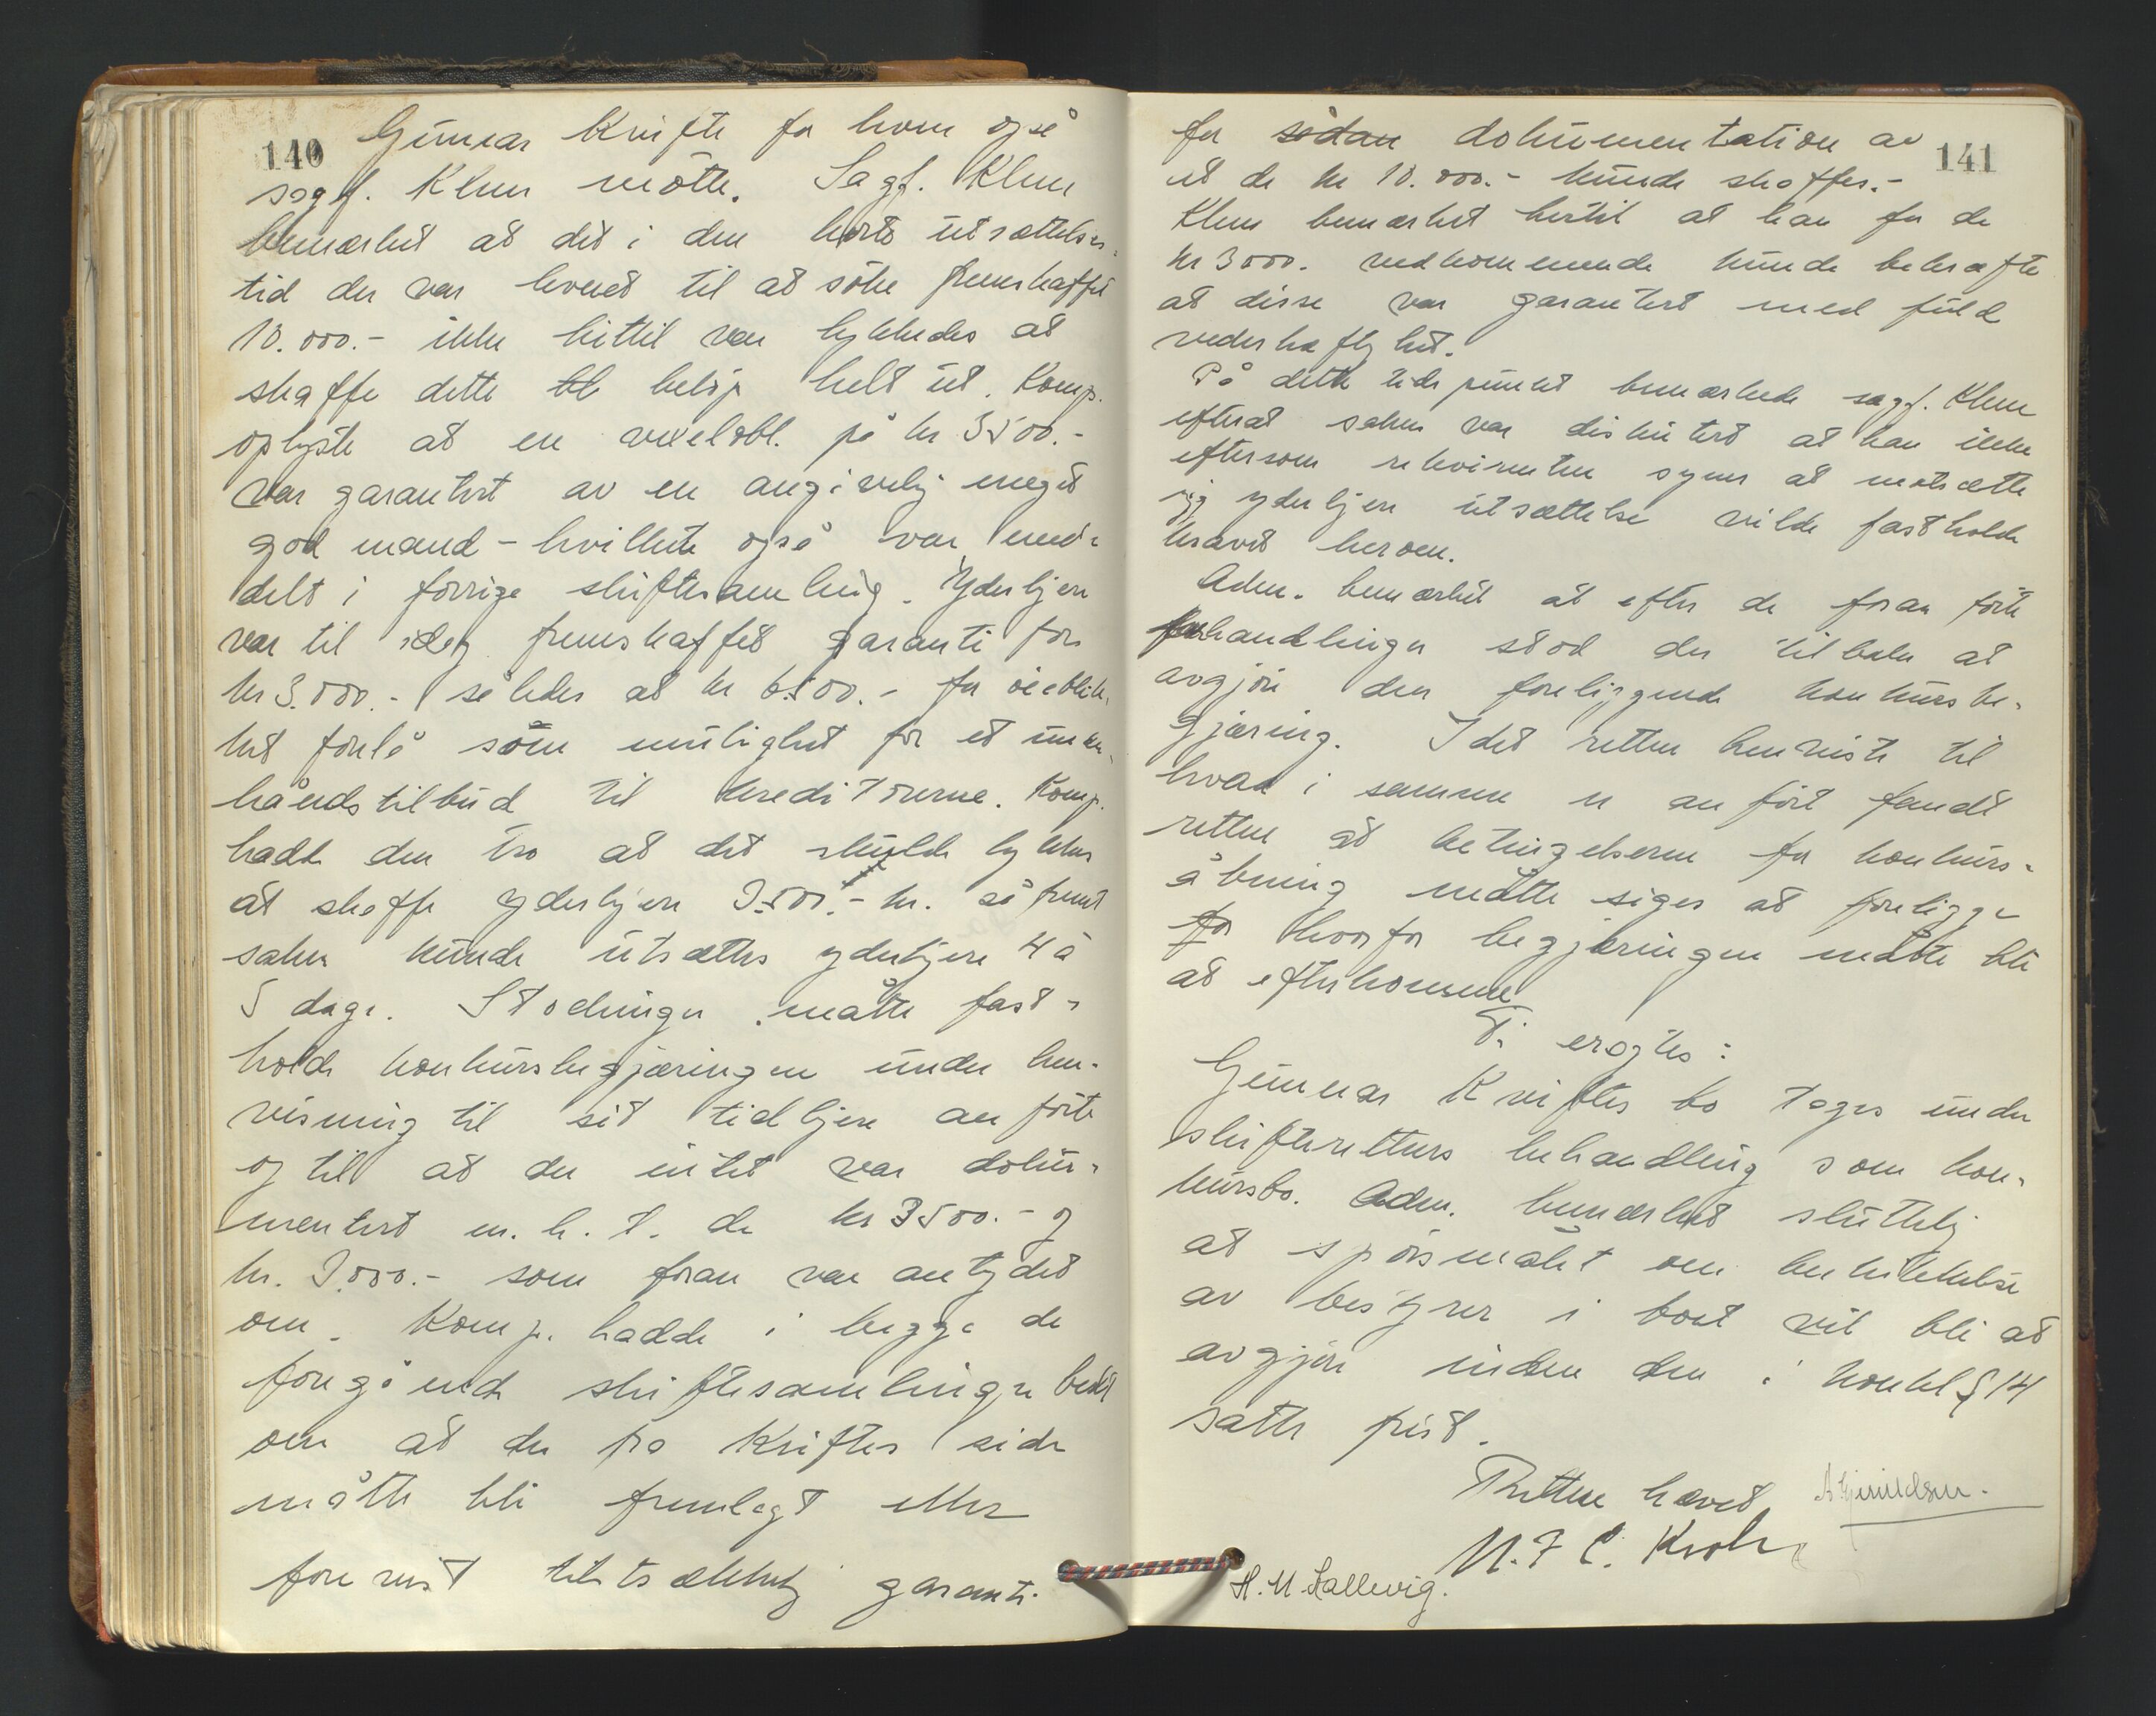 140
Gunnar Kvifte for hvem også
sagf. Klem møtte. Sagf. Klem
bemærket at det i den korte utsættelses-
tid der var levnet til at søke fremskaffet
10.000.- ikke hittil var lykkedes at
skaffe dette bl beløp helt ut. Komp.
oplyste at en vexelobl. på kr 3500.-
var garantert av en angivelig meget
god mand - hvilket også var med-
delt i forrige skiftesamling. Yderligere
var til idag fremskaffet garanti for
kr 3.000.- således at kr 6.500.- for øieblik-
ket forelå som mulighet for et under-
håndstilbud til kreditorerne. Komp.
hadde den tro at det skulde lykkes
at skaffe yderligere 3.500.- kr. såfremt
saken kunde utsættes yderligere 4 à
5 dage. Stockinger måtte fast-
holde konkursbegjæringen under hen-
visning til sit tidligere anførte
og til at der intet var doku-
mentert m.h.t. de kr 3500.- og
kr. 3.000.- som foran var antydet
om. Komp. hadde i begge de
foregående skiftesamlinger bedt
om at der fra Kviftes side
måtte bli fremlagt eller
forevist tilstrækkelig garanti
141
for sådan dokumentation av
at de kr 10.000.- kunde skaffes.-
Klem bemærket hertil at han for de
kr 3000. vedkommende kunde bekræfte
at disse var garantert med fuld
vederhæftighet.
På dette tidspunkt bemærkede sagf. Klem
efterat saken var diskutert at han ikke
eftersom rekvirenten synes at motsætte
sig yderligere utsættelse vilde fastholde
kravet herom.
Adm. bemærket at efter de foran førte
forhandlinger stod der tilbake at
avgjøre den foreliggende konkursbe-
gjæring. Idet retten henviste til
hvad i sammen er anført fandt
retten at betingelserne for konkurs-
åbning måtte siges at foreligge
for hvorfor begjæringen måtte bli
at efterkomme
Ti eragtes:
Gunnar Kviftes bo tages under
skifterettens behandling som kon-
kursbo. Adm. bemærket sluttelig
at spørsmålet om beskikkelse
av bestyrer i boet vil bli at
avgjøre inden den i konkl § 14
satte frist.
Retten hævet
N. F. C. Krohn
H. M. Hallevig.